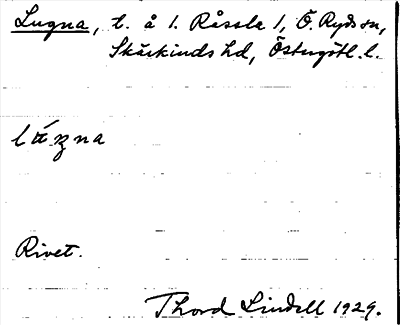 Lugna, t. å 1. Råssla 1, Ö. Ryds sn,
Skärkinds hd, Östergötl. l.
Rivet.
Thord Lindell 1929.